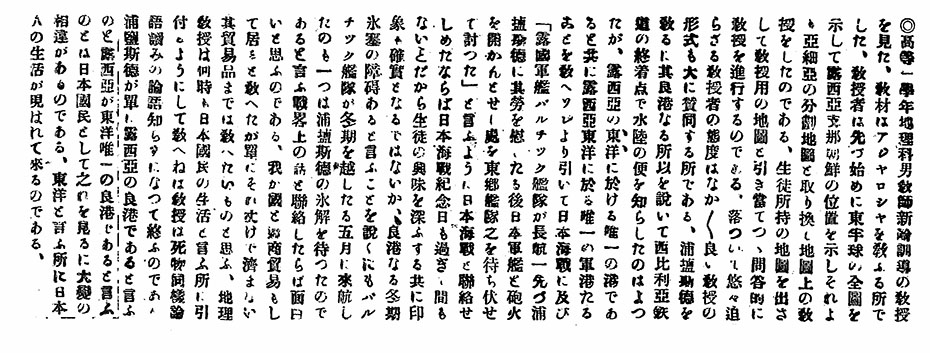 ◎高等一學年地理科男敎師新崎訓導の敎授
を見た、敎材はアジヤロシヤを敎ふる所で
した、敎授者は先づ始めに東半球の全圖を
示して露西亞支那朝鮮の位置を示しそれよ
り亞細亞の分割地圖と取り換し地圖上の敎
授をしたのである、生徒所持の地圖を出さ
して敎授用の地圖と引き當てつゝ問答的に
敎授を進行するのである、落ついて悠々追
らざる敎授者の態度はなか〱良い敎授の
形式も大に賛同する所である、浦鹽斯德を
敎るに其良港なる所以を說いて西比利亞鉄
道の終着点で水陸の便を知らしたのはよつ
たが、露西亞の東洋に於ける唯一の港であ
ると共に露西亞東洋に於る唯一の軍港たる
ことを敎へソレより引いて日本海戰に及び
「露國軍艦バルチック艦隊が長航一先づ浦
鹽斯德に其勞を慰したる後日本軍艦と砲火
を開かんとせし處を東鄕艦隊之を待ち伏せ
て討つた」と言ふように日本海戰と聯絡せ
しめたならば日本海戰紀念日も過ぎし間も
ないとだから生徒の興味を深ふする共に印
象も確實となるではないか、良港なる冬期
氷塞の障碍あると言ふことを說くにもバル
チック艦隊が冬期を越したる五月に來航し
たのも一つは浦鹽斯德の氷解を待つたので
あると言ふ戰畧上の話と聯絡したらば面白
いと思ふのである、我か國と露商貿易もし
て居ると敎へたが單にそれ丈けで濟まない
其貿易品までは敎へたいものと思ふ、地理
敎授は何時も日本國民の生活と言ふ所に引
付るようにして敎へねは敎授は死物同樣論
語讀みの論語知らずになつて終ふのである
浦鹽斯德が單に露西亞の良港であると言ふ
のと露西亞が東洋唯一の良港であると言ふ
のとは日本國民として之れを見るに大變の
相違があるものである、東洋と言ふ所に日本
人の生活が現はれて來るのである、